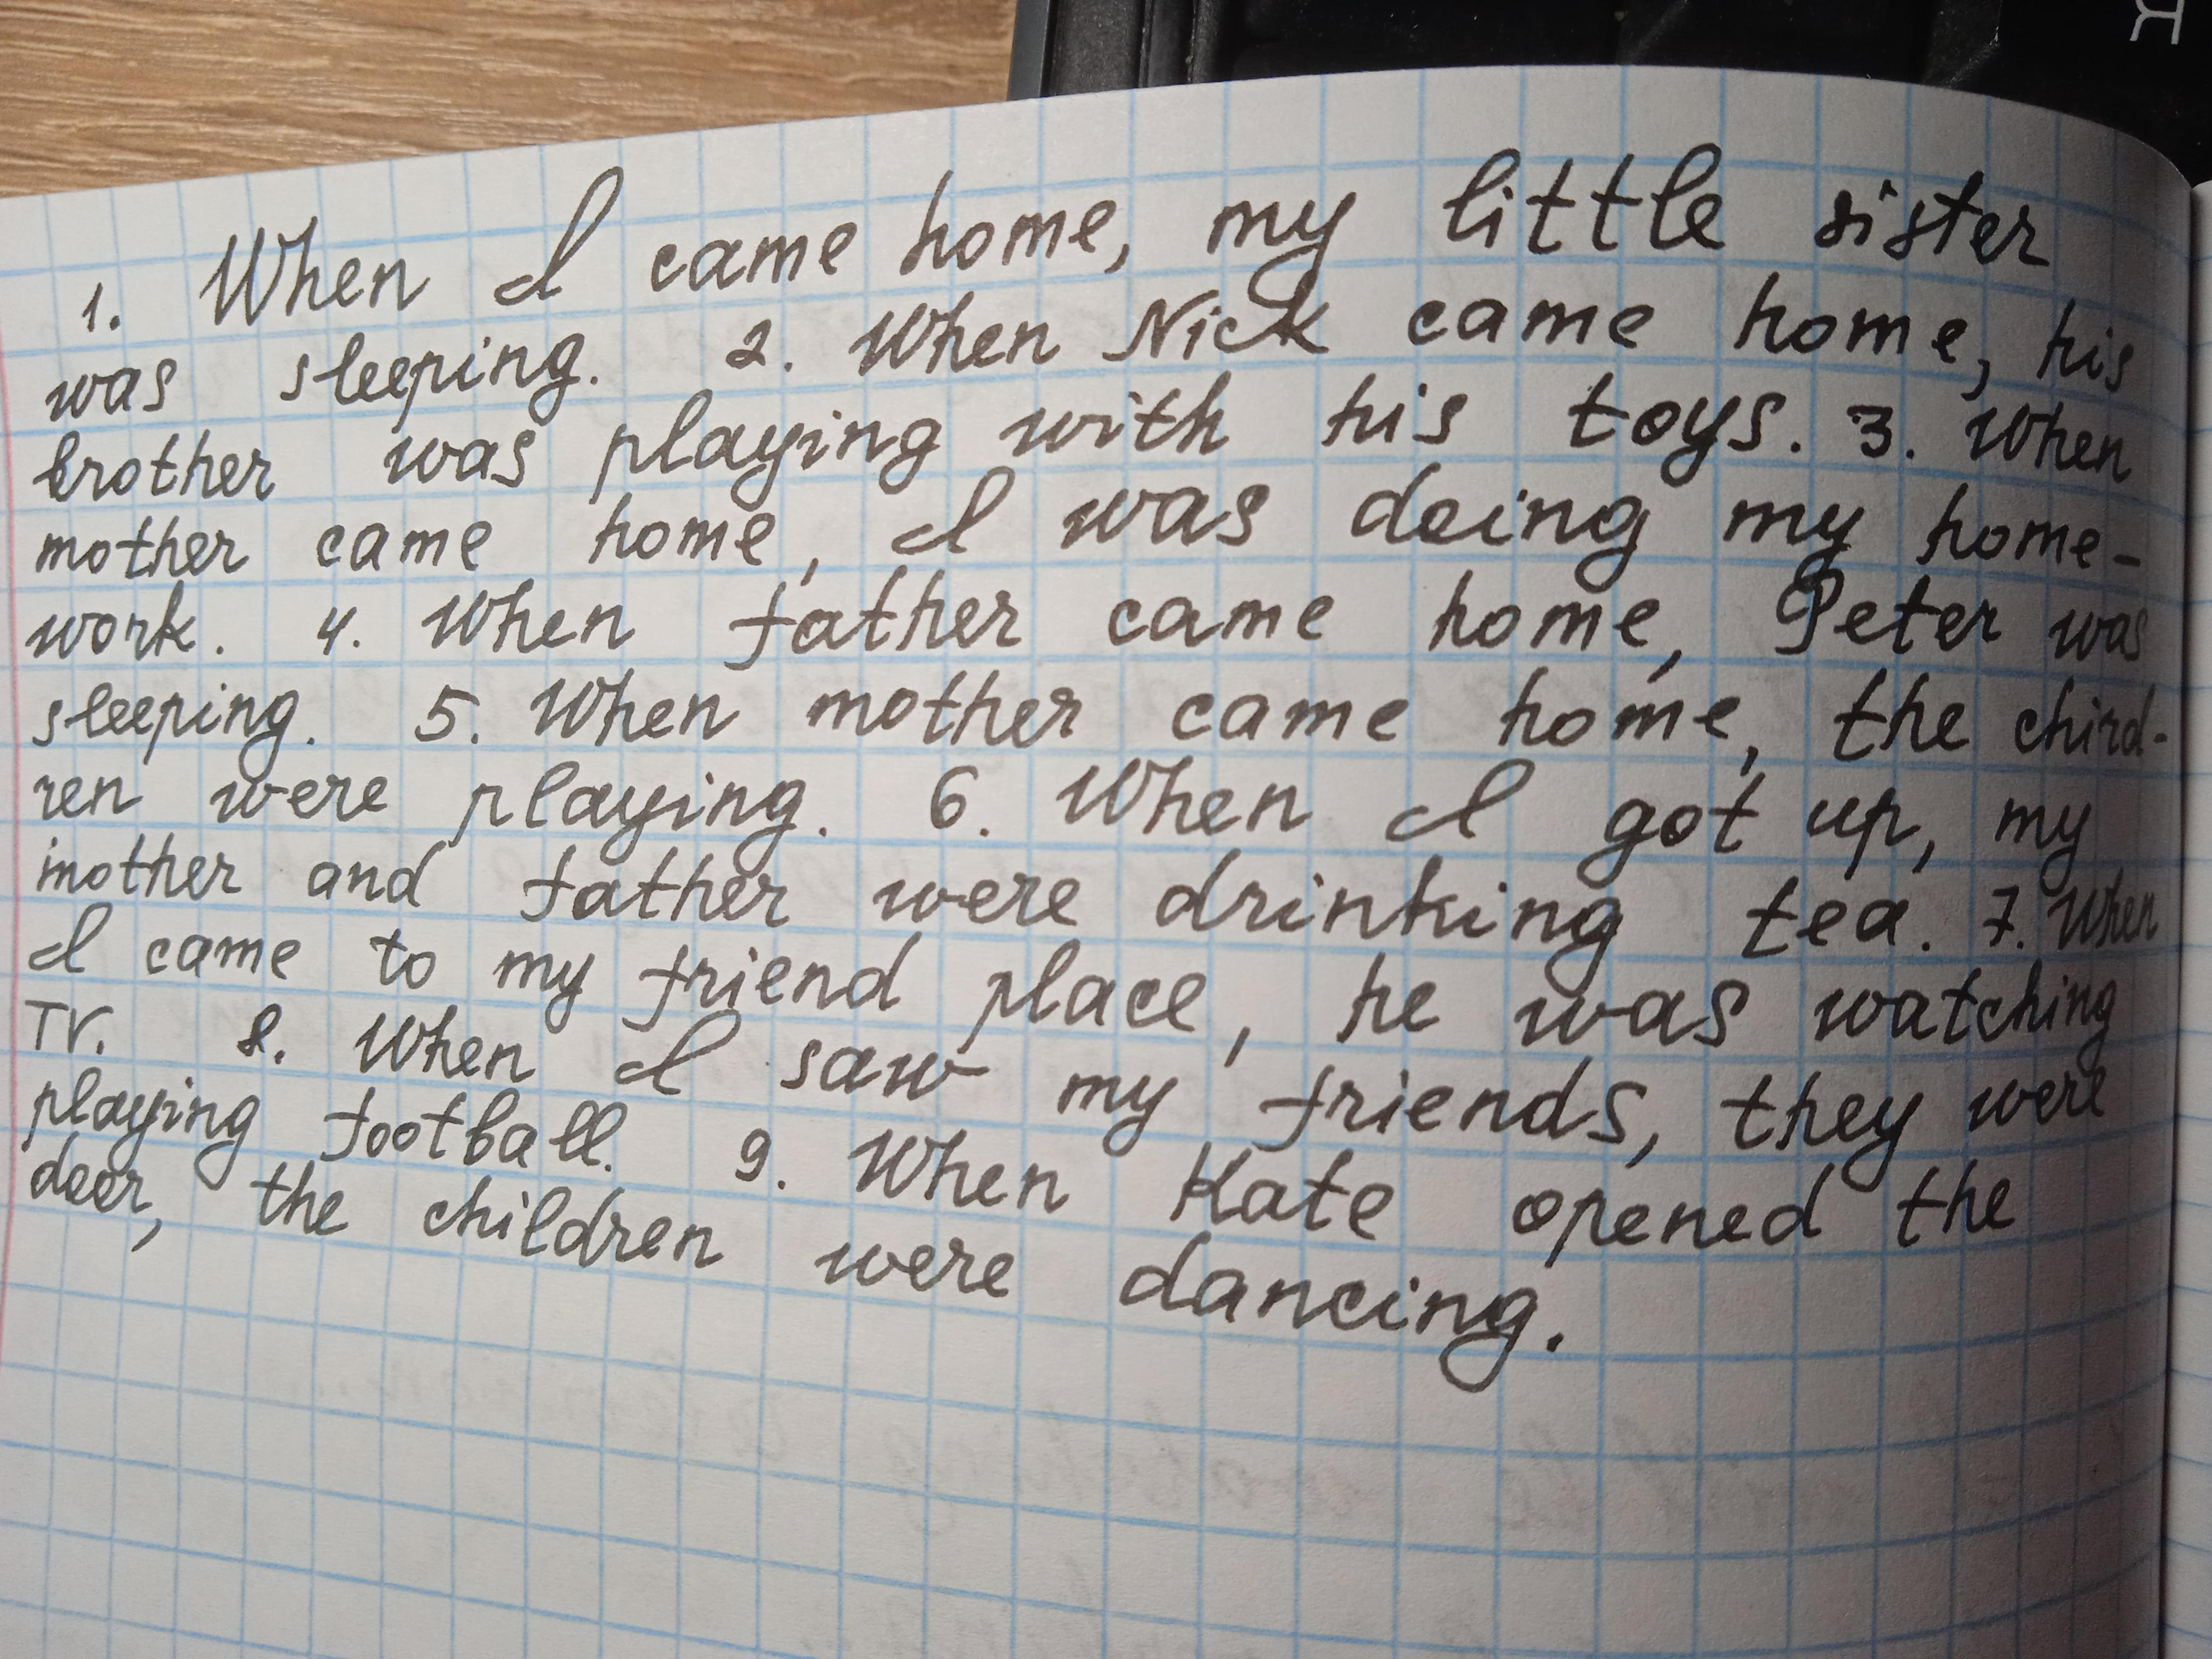 1. When I came home, my little sister
was sleeping. 2. When Nick came home, his
brother was playing with his toys. 3. When
mother came home, I was doing my home-
work. 4. When father came home, Peter was
sleeping. 5. When mother came home, the chird-
ren were playing. 6. When I got up, my
mother and father were drinking tea. 7. When
I came to my friend place, he was watching
TV. 8. When I saw my friends, they were
playing football. 9. When Kate opened the
door, the children were dancing.